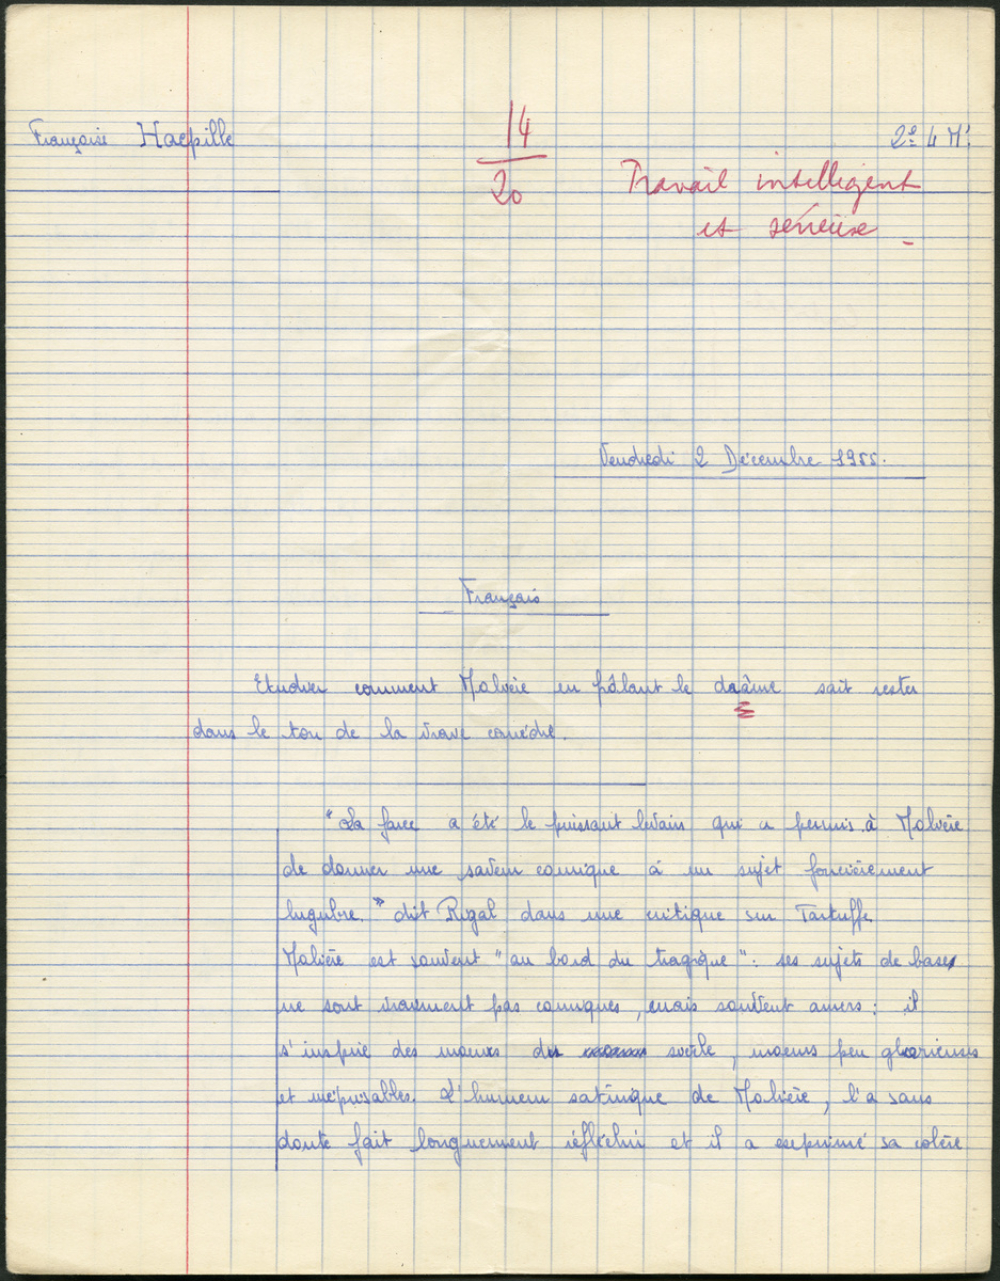 Françoise Haepille
14
20
2e 4 M'
Travail intelligent
et sérieux
Vendredi 2 Décembre 1955.
Français
Etudier comment Molière en frôlant le drâme sait rester
dans le ton de la vraie comédie.
"La farce a été le puissant levain qui a permis à Molière
de donner une saveur comique à un sujet foncièrement
lugubre." dit Rigal dans une critique sur Tartuffe
Molière est souvent "au bord du tragique": ses sujets de base
ne sont vraiment pas comiques, mais souvent amers: il
s'inspire des moeurs du siècle, moeurs peu glorieuses
et méprisables. L'humeur satirique de Molière, l'a sans
doute fait longuement réfléchir et il a exprimé sa colère